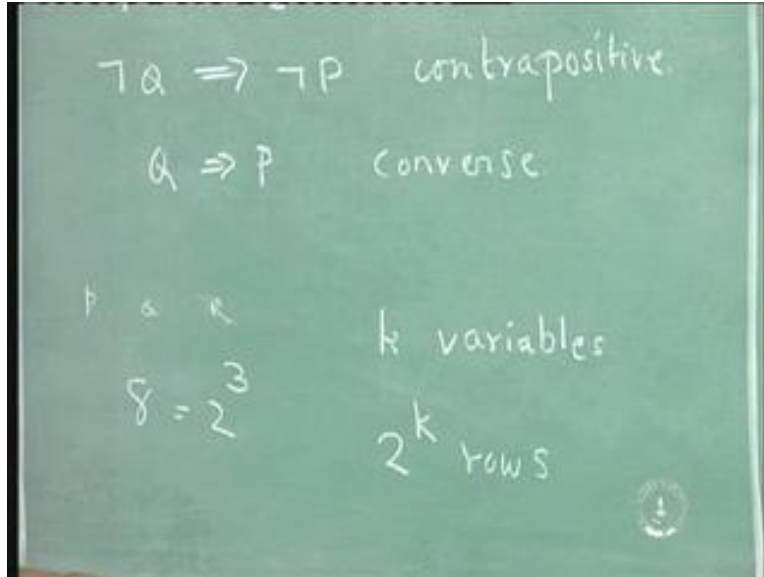 ¬Q ⇒ ¬P contrapositive.
Q ⇒ P converse
P Q R
k variables
8 = 2^3
2^k rows